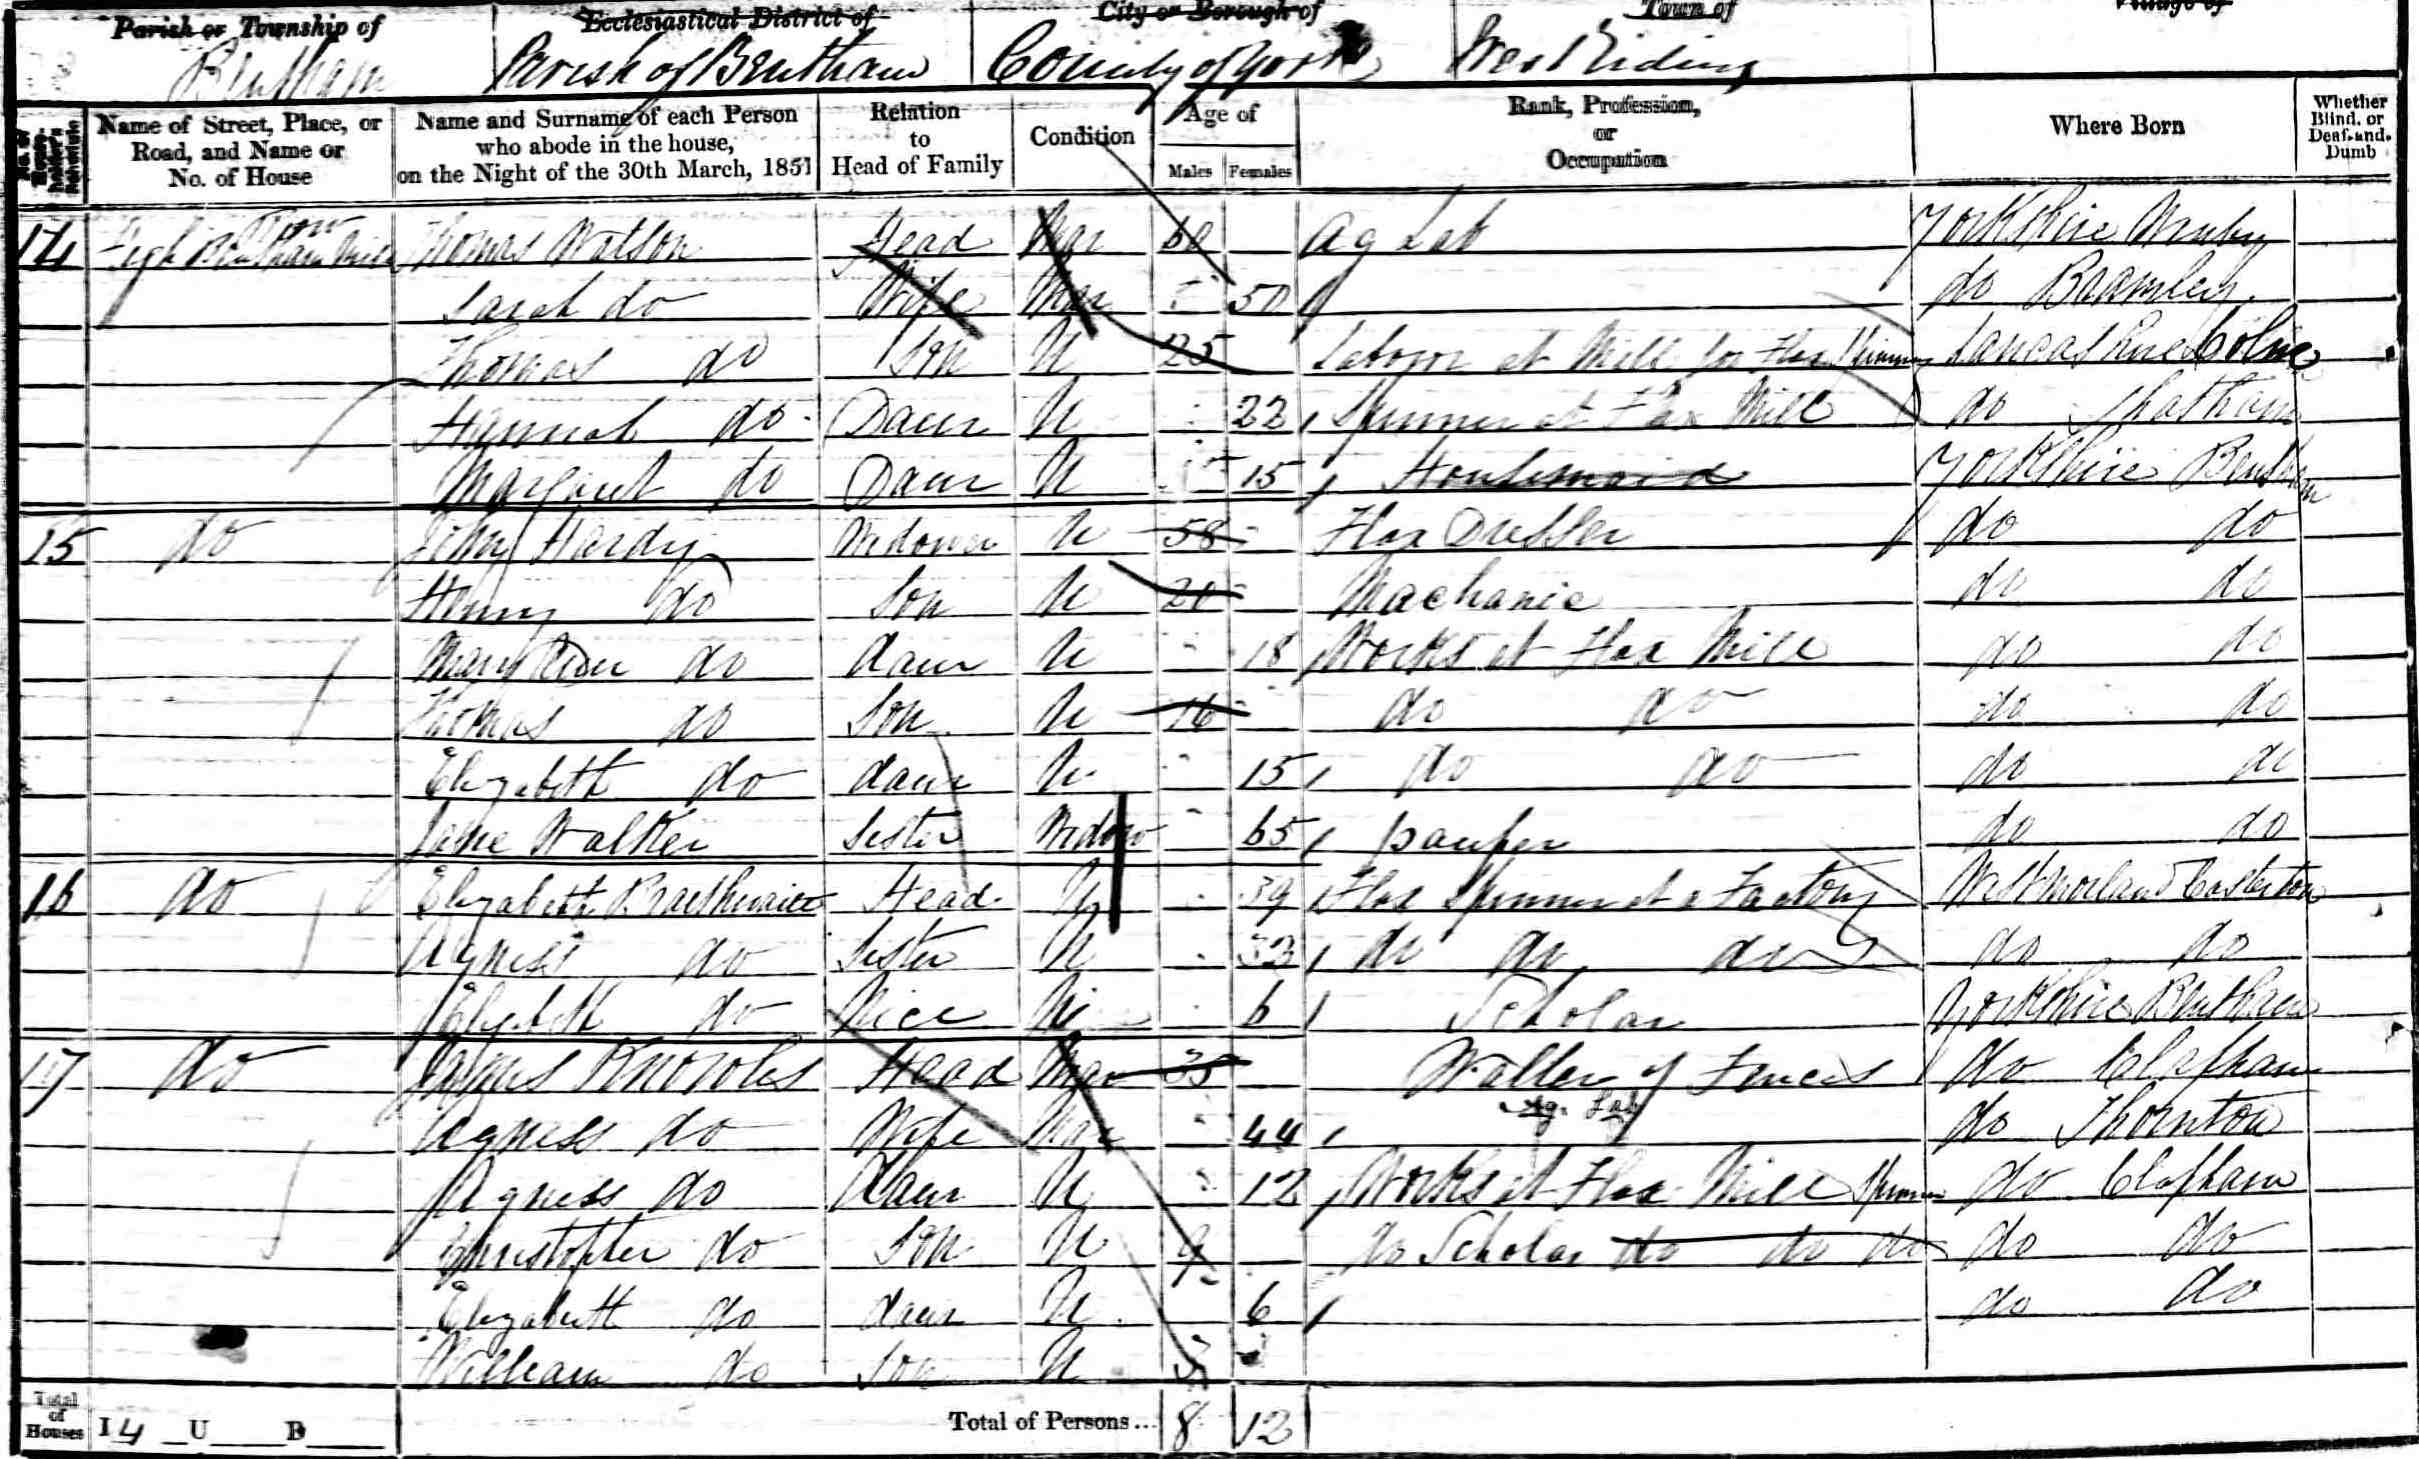 Parish or Township of Ecclesiastical District of City or Borough of Town of Village of
Bentham Parish of Bentham County of York West Riding
No. of House-holder's Schedule Name of Street, Place, or Road, and Name or No. of House Name and Surname of each Person who abode in the house, on the Night of the 30th March, 1851 Relation to Head of Family Condition Age of Males Females Rank, Profession, or Occupation Where Born Whether Blind, or Deaf-and-Dumb
14 High Bentham Thomas Watson Head Mar 60 Ag Lab Yorkshire
Sarah do Wife Mar 50 do Bramley
Thomas do Son U 25 Labour at Mill for Flax Spinning Lancashire Colne
Hannah do Daur U 22 Spinner at Flax Mill do
Margaret do Daur U 15 Housemaid Yorkshire Bentham
15 do John Hardy Widower U 58 Flax Dresser do do
Henry do Son U 20 Machanic do do
Mary Ann do daur U 18 Works at Flax Mill do do
Thomas do Son U 16 do do do do
Elizabeth do daur U 15 do do do do
Jane Walker Sister Widow 65 pauper do do
16 do Elizabeth Braithwaite Head U 39 Flax Spinner at a Factory Westmorland Casterton
Agness do Sister U 32 do do do do do
Elizbeth do Niece U 6 Scholar Yorkshire Bentham
17 do James Knowles Head Mar 35 Waller of Fences do Clapham
Ag. Lab
Agness do Wife Mar 44 do Thornton
Agness do Daur U 12 Works at Flax Mill Spinner do Clapham
Christopher do Son U 9 do Scholar do do do do do
Elizabeth do daur U 6 do do
William do Son U 3
Total of Houses I 4 U B Total of Persons... 8 12